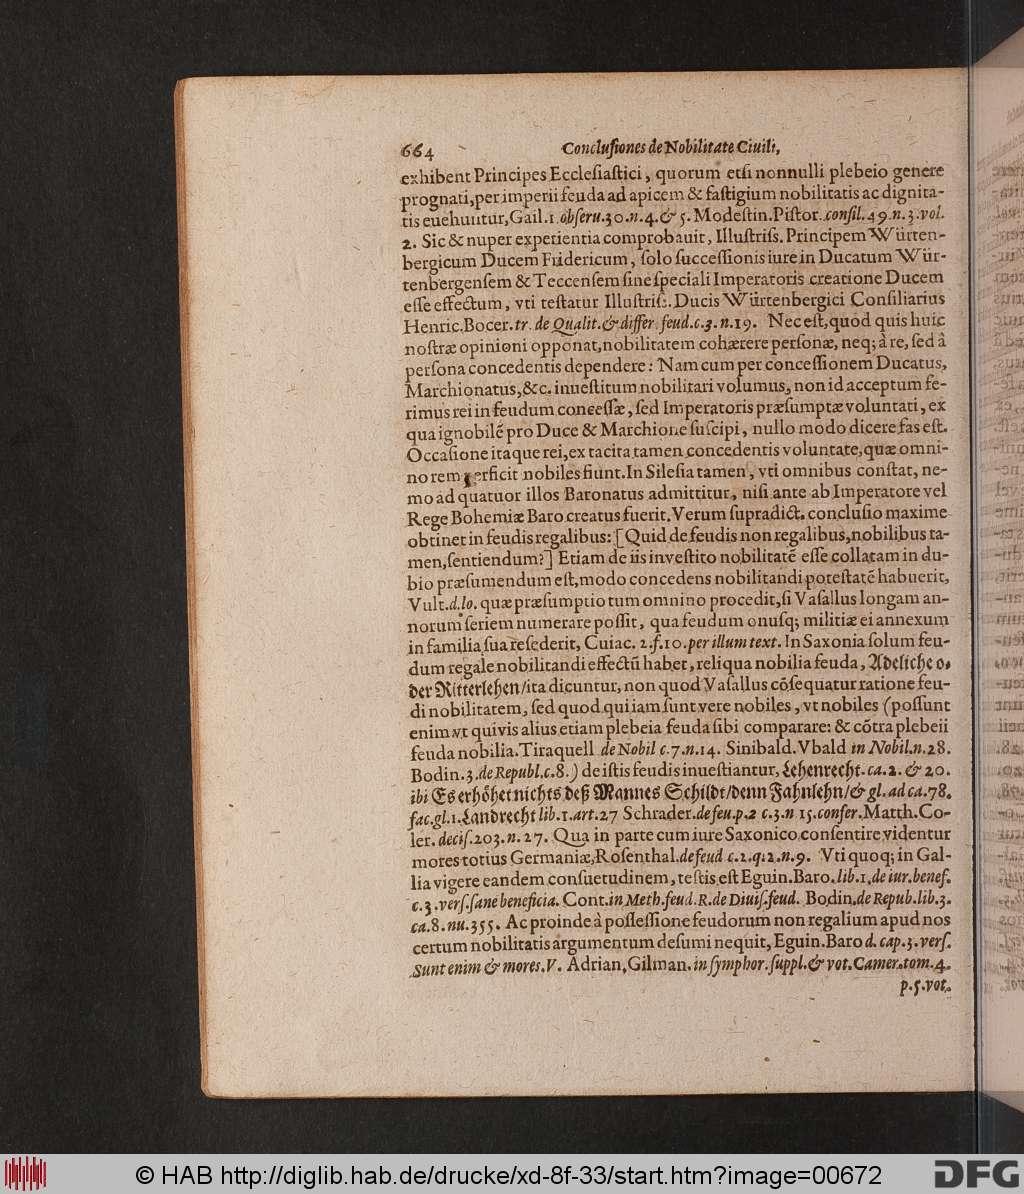 664 Conclusiones de Nobilitate Ciuili,
exhibent Principes Ecclesiastici, quorum etsi nonnulli plebeio genere
prognati, per imperii feuda ad apicem & fastigium nobilitatis ac dignita-
tis euehuntur, Gail. 1. obseru. 30. n. 4. & 5. Modestin. Pistor. consil. 49. n. 3. vol.
2. Sic & nuper experientia comprobauit, Illustriss. Principem Würten-
bergicum Ducem Fridericum, solo successionis iure in Ducatum Wür-
tenbergensem & Teccensem sine speciali Imperatoris creatione Ducem
esse effectum, vti testatur Illustriss. Ducis Würtenbergici Consiliarius
Henric. Bocer. tr. de Qualit. & differ. feud. c. 3. n. 19. Nec est, quod quis huic
nostræ opinioni opponat, nobilitatem cohærere personæ, neq; à re, sed à
persona concedentis dependere: Nam cum per concessionem Ducatus,
Marchionatus, &c. inuestitum nobilitari volumus, non id acceptum fe-
rimus rei in feudum concessæ, sed Imperatoris præsumptæ voluntati, ex
qua ignobilē pro Duce & Marchione suscipi, nullo modo dicere fas est.
Occasione itaque rei, ex tacita tamen concedentis voluntate, quæ omni-
no rem perficit nobiles fiunt. In Silesia tamen, vti omnibus constat, ne-
mo ad quatuor illos Baronatus admittitur, nisi ante ab Imperatore vel
Rege Bohemiæ Baro creatus fuerit. Verum supradict. conclusio maxime
obtinet in feudis regalibus: [Quid de feudis non regalibus, nobilibus ta-
men, sentiendum?] Etiam de iis investito nobilitatē esse collatam in du-
bio præsumendum est, modo concedens nobilitandi potestatē habuerit,
Vult. d. lo. quæ præsumptio tum omnino procedit, si Vasallus longam an-
norum seriem numerare possit, qua feudum onusq; militiæ ei annexum
in familia sua resederit, Cuiac. 2. f. 10. per illum text. In Saxonia solum feu-
dum regale nobilitandi effectū habet, reliqua nobilia feuda, Adeliche o-
der Ritterlehen/ ita dicuntur, non quod Vasallus cōsequatur ratione feu-
di nobilitatem, sed quod qui iam sunt vere nobiles, vt nobiles (possunt
enim vt quivis alius etiam plebeia feuda sibi comparare: & cōtra plebeii
feuda nobilia. Tiraquell de Nobil c. 7. n. 14. Sinibald. Vbald in Nobil. n. 28.
Bodin. 3. de Republ. c. 8.) de istis feudis inuestiantur, Lehenrecht. ca. 2. & 20.
ibi Es erhöhet nichts deß Mannes Schildt/ denn Fahnlehn/ & gl. ad ca. 78.
fac. gl. 1. Landrecht lib. 1. art. 27 Schrader. de feu. p. 2 c. 3. n 15. confer. Matth. Co-
ler. decis. 203. n. 27. Qua in parte cum iure Saxonico consentire videntur
mores totius Germaniæ, Rosenthal. de feud c. 2. q. 2. n. 9. Vti quoq; in Gal-
lia vigere eandem consuetudinem, testis est Eguin. Baro. lib. 1. de iur. benef.
c. 3. vers. sane beneficia. Cont. in Meth. feud. R. de Diuis. feud. Bodin. de Repub. lib. 3.
ca. 8. nu. 355. Ac proinde à possessione feudorum non regalium apud nos
certum nobilitatis argumentum desumi nequit, Eguin. Baro d. cap. 3. vers.
Sunt enim & mores. V. Adrian, Gilman. in symphor. suppl. & vot. Camer. tom. 4.
p. 5. vot.
© HAB http://diglib.hab.de/drucke/xd-8f-33/start.htm?image=00672
DFG